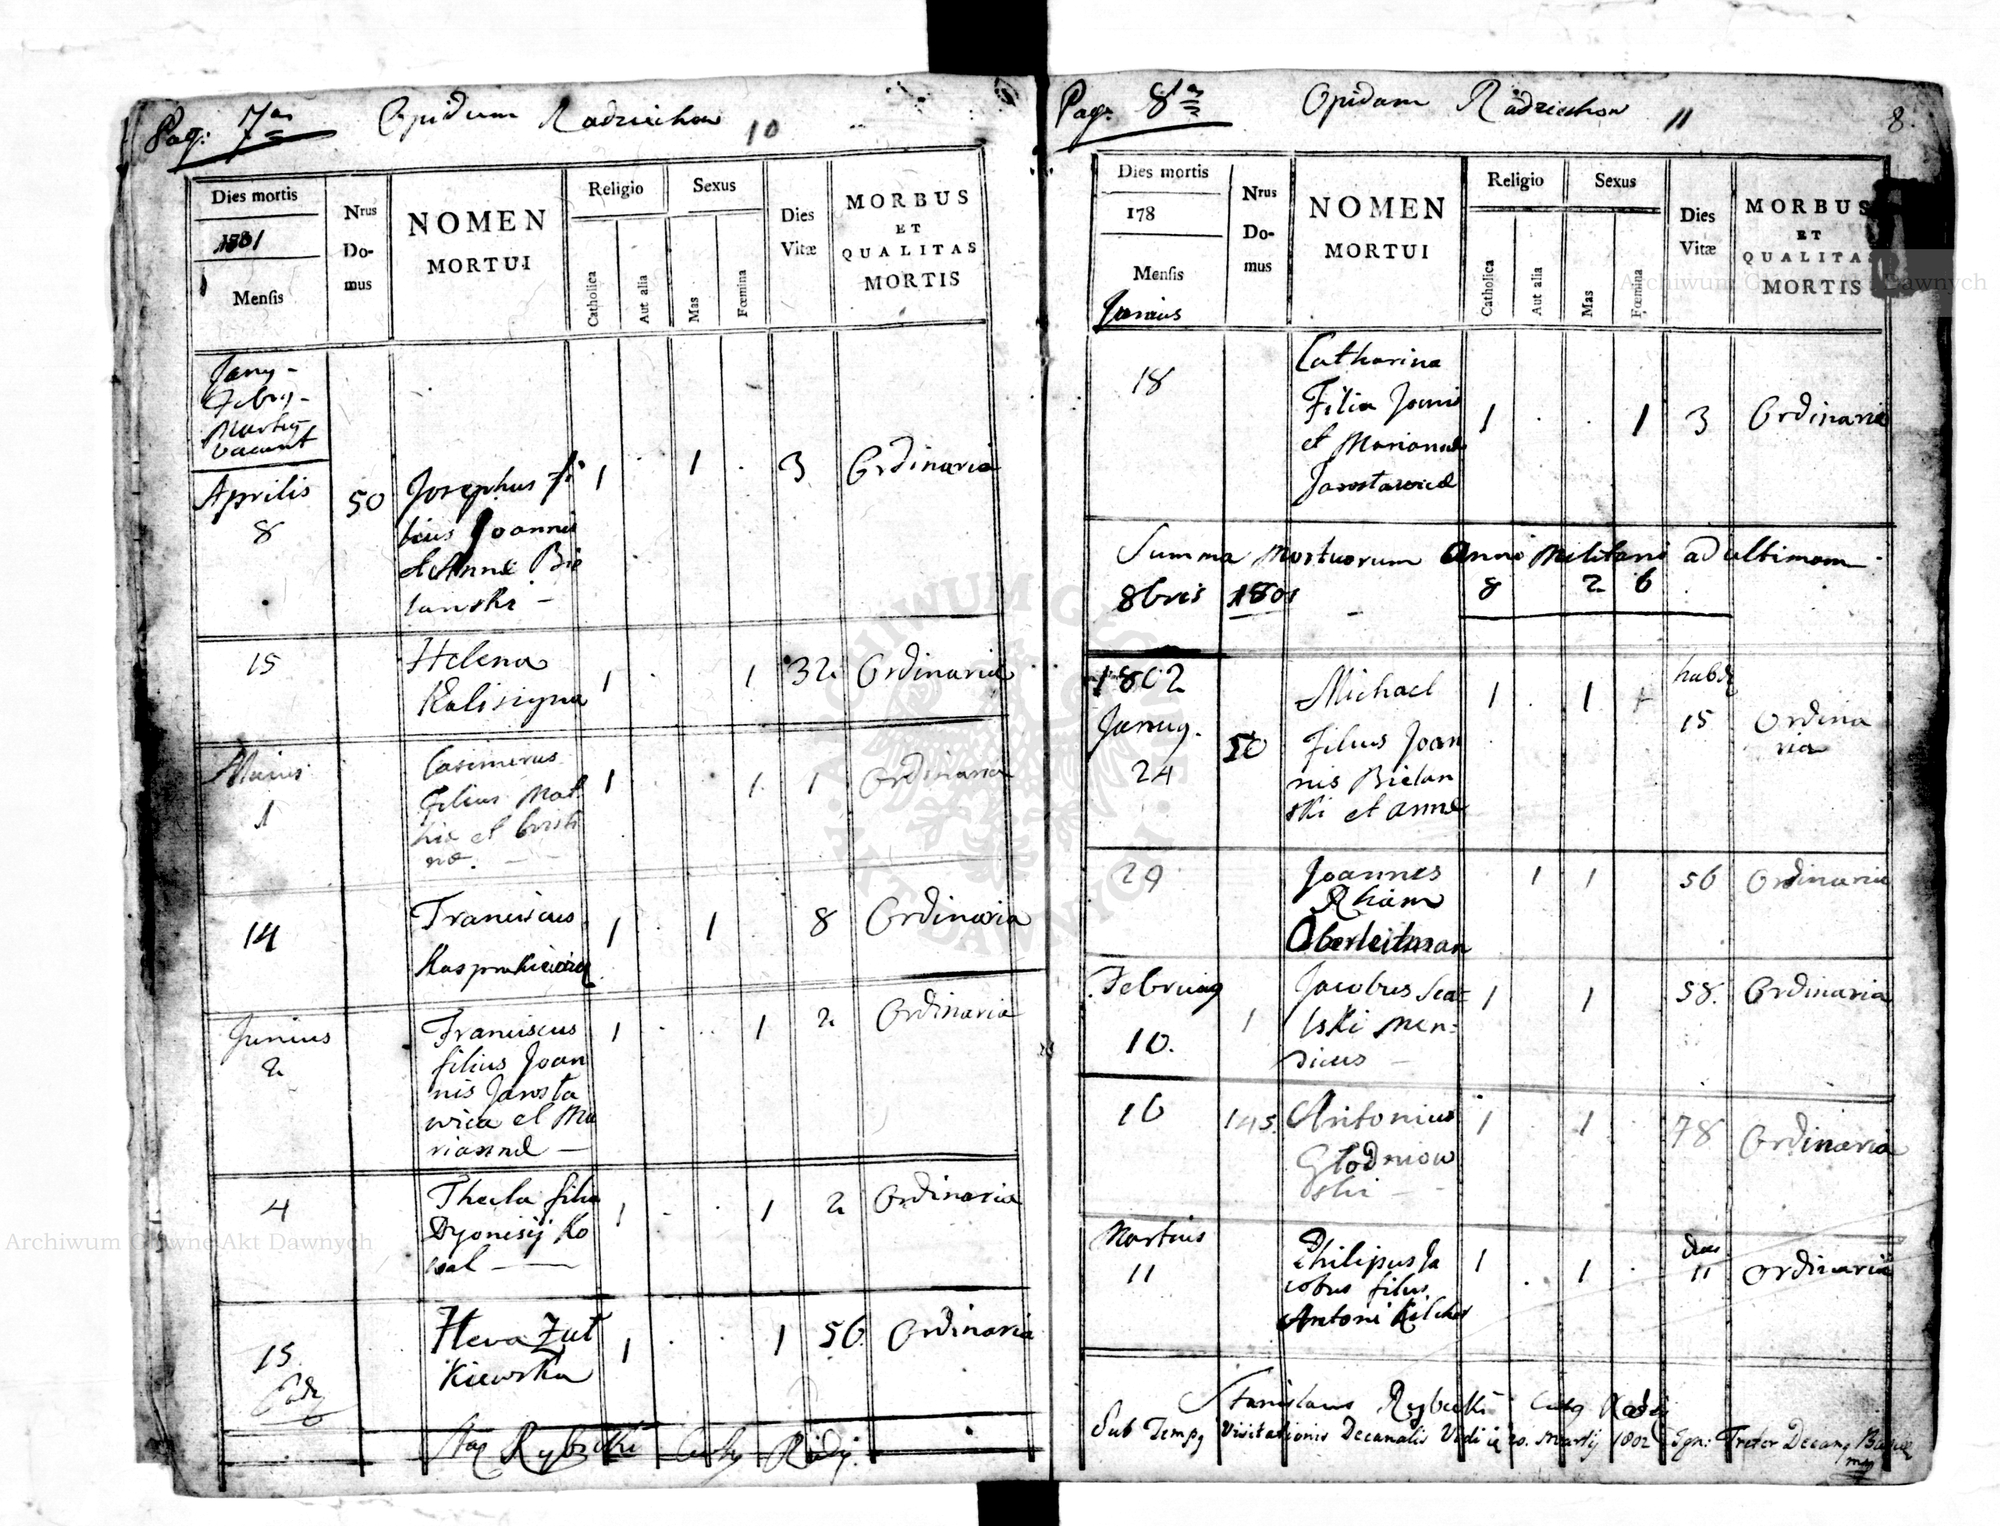 Pag: 7ma Opidum Radziechow 10
Dies mortis
1801
Mensis
Nrus
Do-
mus
NOMEN
MORTUI
Religio
Catholica
Aut alia
Sexus
Mas
Fœmina
Dies
Vitæ
MORBUS
ET
QUALITAS
MORTIS
Martiy
vacant
Aprilis
8
50
Josephus fi
lius Joannis
et Annæ Bie
lanski –
1 . 1 . 3 Ordinaria
15
Helena
1 . 1 32 Ordinaria
Maius
1
Casimirus
filius Mat
hiæ et Cristi
næ.
1 1 1 Ordinaria
14
Franciscus
1 1 8 Ordinaria
Junius
2
Franciscus
filius Joan
nis Jarosta
wicz et Ma
riannæ –
1 . . 1 2 Ordinaria
4
Thecla filia
Dyonisij Ko
wal –
1 . . 1 2 Ordinaria
15.
Heva Zul
kiewska
1 . . 1 56 Ordinaria
Rybicki
Pag: 8va Opidum Radziechow 11 8.
Dies mortis
178
Mensis
Junius
Nrus
Do-
mus
NOMEN
MORTUI
Religio
Catholica
Aut alia
Sexus
Mas
Fœmina
Dies
Vitæ
MORBUS
ET
QUALITAS
MORTIS
18
Catharina
Filia Joannis
et Mariannæ
1 . . 1 3 Ordinaria
Summa Mortuorum Anni Militaris ad ultimam
8bris 1801 – 8 2 6
1802
Januy.
24
50
Michael
Filius Joan
nis Bielan
ski et Annæ
1 1
15
Ordina
ria
29
Joannes
Oberleitman
1 1 56 Ordinaria
Februay
10.
1
Jacobus
1 1 58. Ordinaria
16
145.
Antonius
Głodniow
ski –
1 1 78 Ordinaria
Martius
11
Philipus Ja
cobus filius
Antoni
1 . 1 .
11
Ordinaria
Stanislaus Rybicki
Sub Tempy Visitationis Decanalis Vidi 20. Martij 1802
Archiwum Główne Akt Dawnych
Archiwum Główne Akt Dawnych
ARCHIWUM GŁÓWNE
AKT DAWNYCH